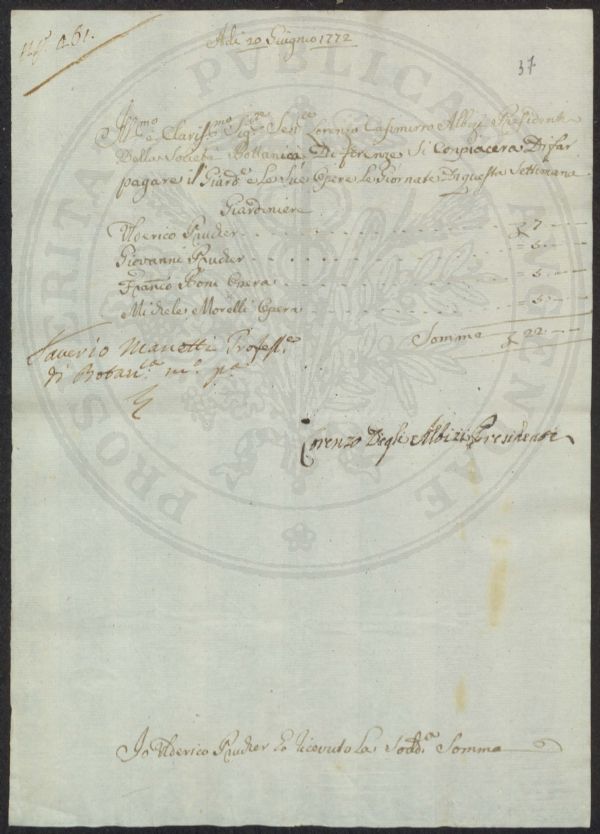 Adi 20 Giugnio 1772
37
Ill.mo e Claris.mo Sig.re Sen.re Lorenzo Casimirro Albizi Presidente
Della Società Bottanica Di firenze Si Conpiacerà Di far
pagare il Giard.e e le Sue Opere le Giornate Di questa Settimana
Giardiniere
Ulderico Prucker 7
Giovanni Prucker 5
Franco Boni Opera 5
Michele Morelli Opera 5
Somma 22
Saverio Manetti Profess.e
di Botan.ca m.o p.a
Lorenzo Degli Albizi Presidente
Io Ulderico Prucker ho ricevuto La Sodd.a Somma
PUBLICAE
PROSPERITATI AUGENDAE